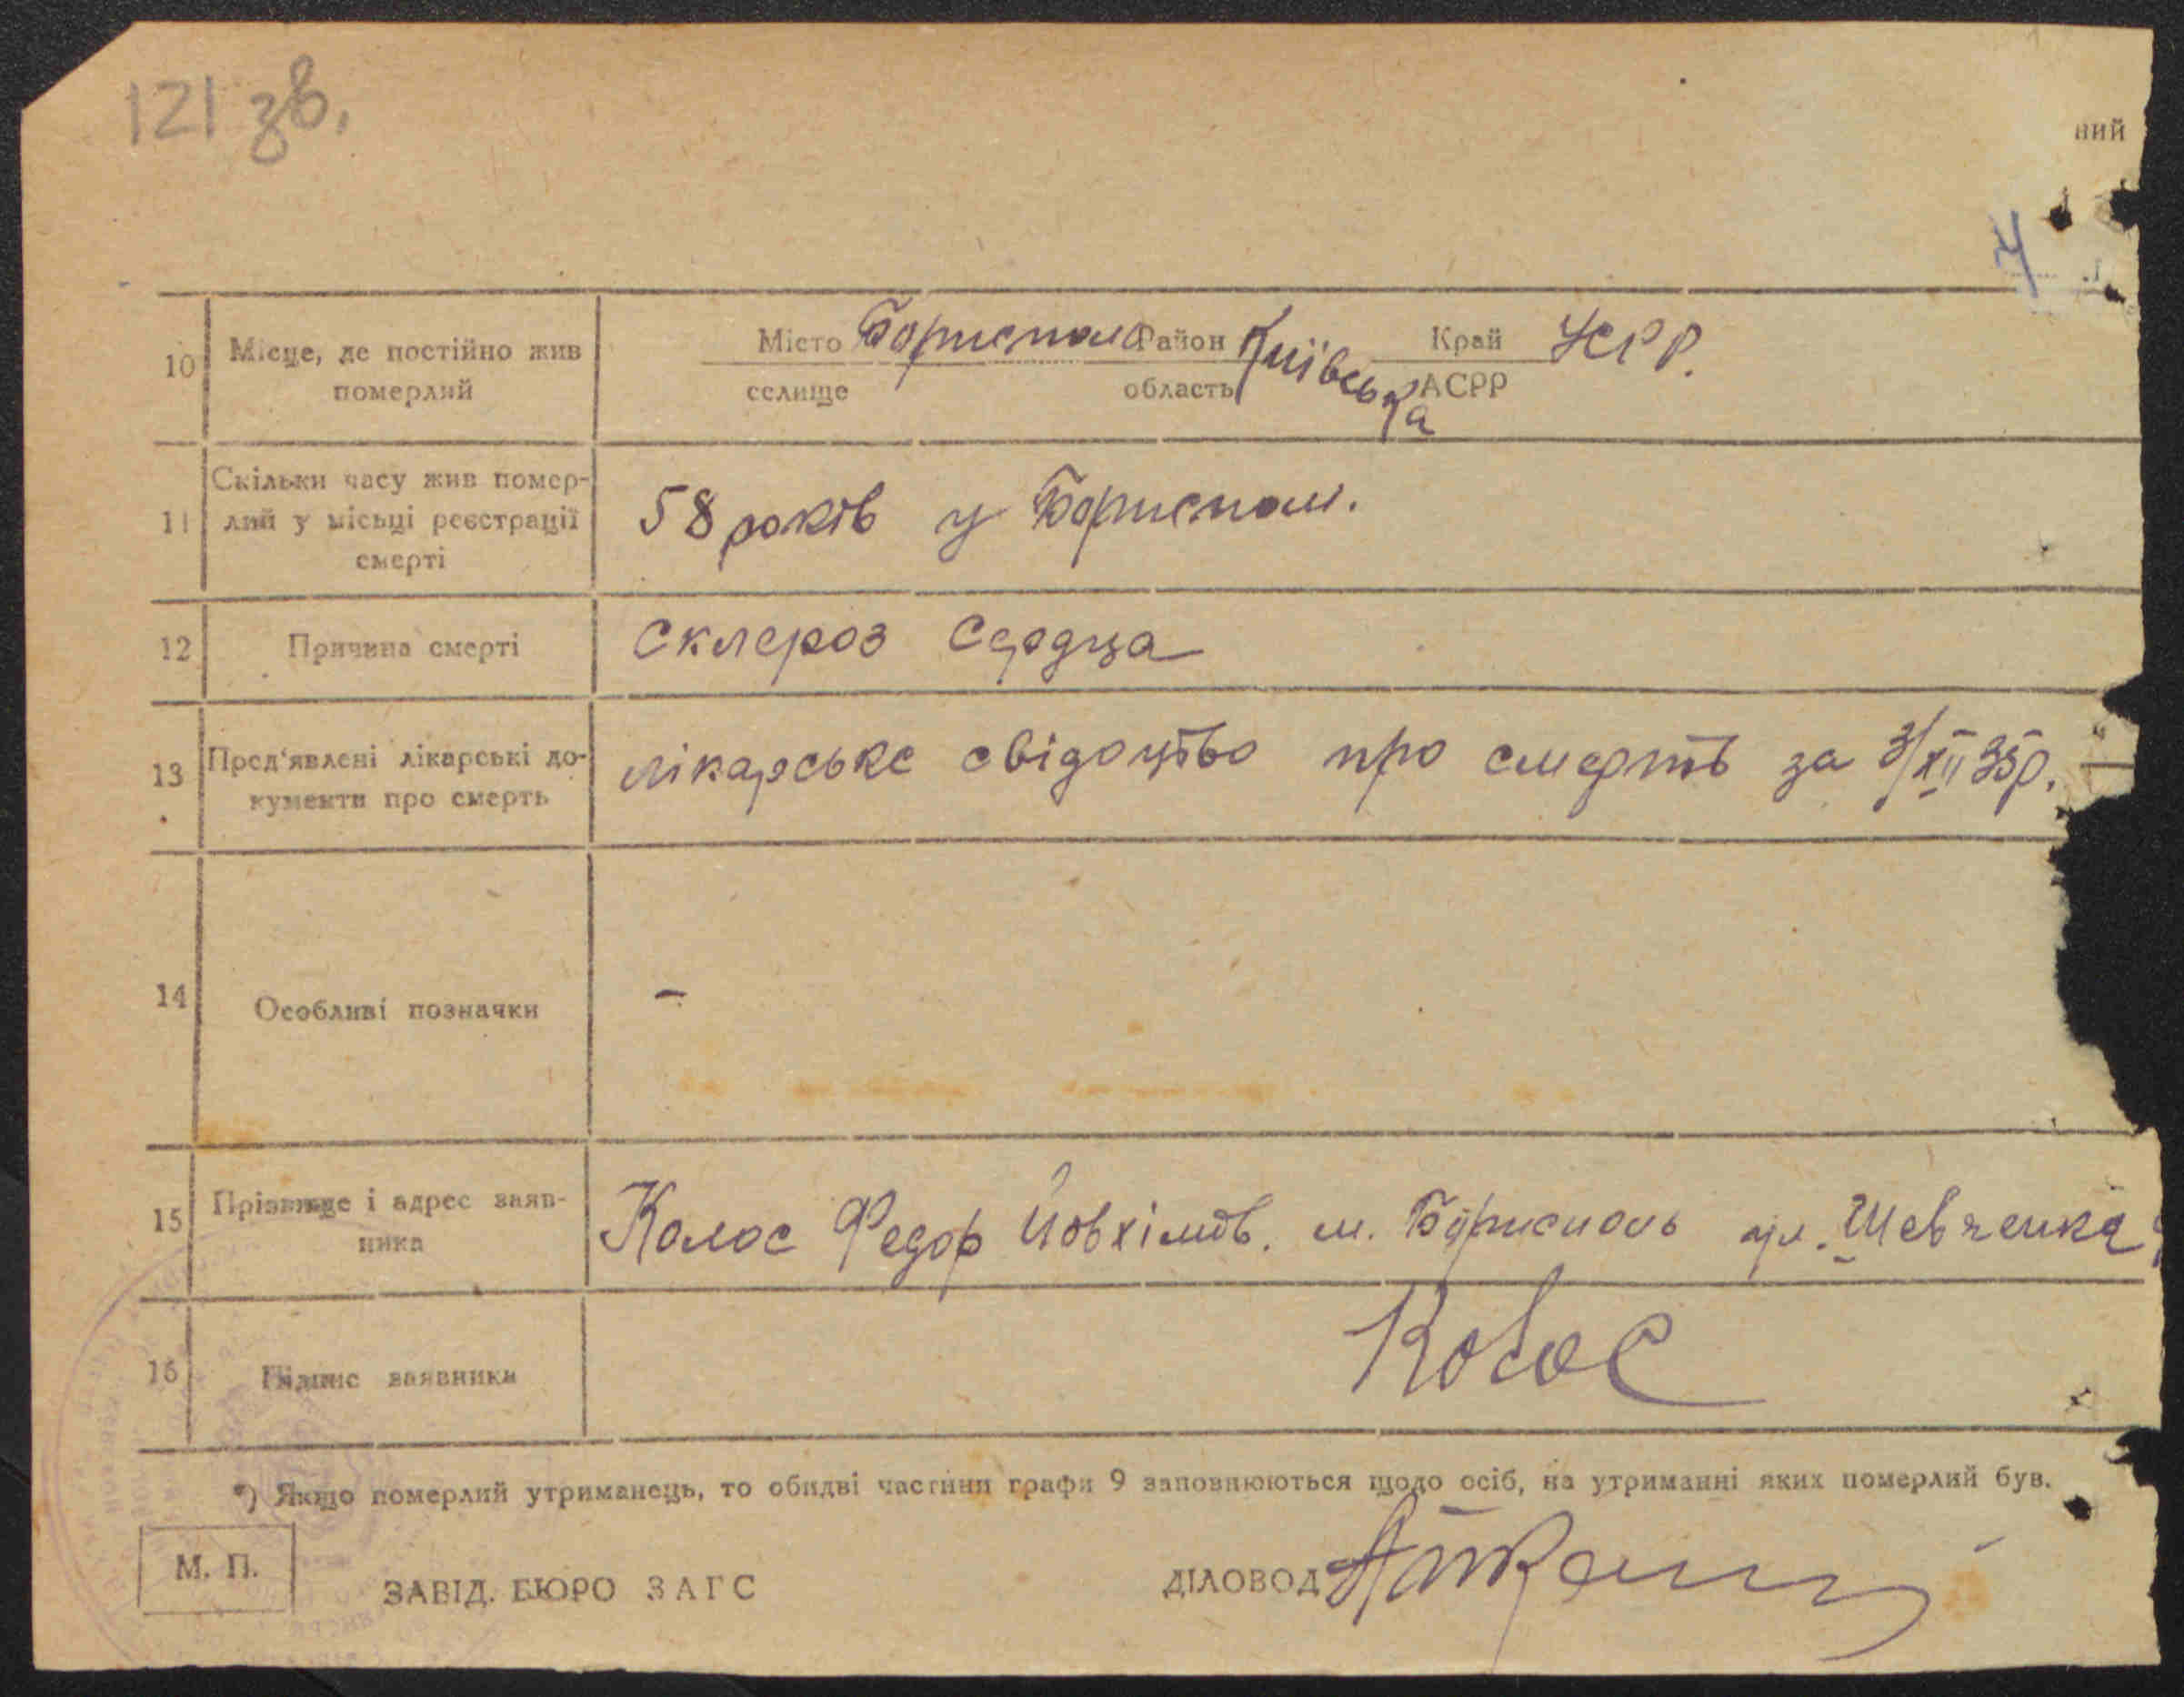 121 зв.
ний
4
10 Місце, де постійно жив померлий
Місто Бориспол Район Київська Край УСРР.
селище область АСРР
11 Скільки часу жив помер-
лий у місьці реєстрації
смерті
58 років у Борисполі.
12 Причина смерті Склероз Сердца
13 Пред'явлені лікарські до-
кументи про смерть
лікарське свідоцтво про смерть за 3/XII 35р.
14 Особливі позначки -
15 Прізвище і адрес заяв-
ника
Колос Федор Йовхімов. м. Бориспіль вул. Шевченка
16 Підпис заявника Колос
*) Якщо померлий утриманець, то обидві частини графи 9 заповнюються щодо осіб, на утриманні яких померлий був.
М. П.
ЗАВІД. БЮРО ЗАГС ДІЛОВОД